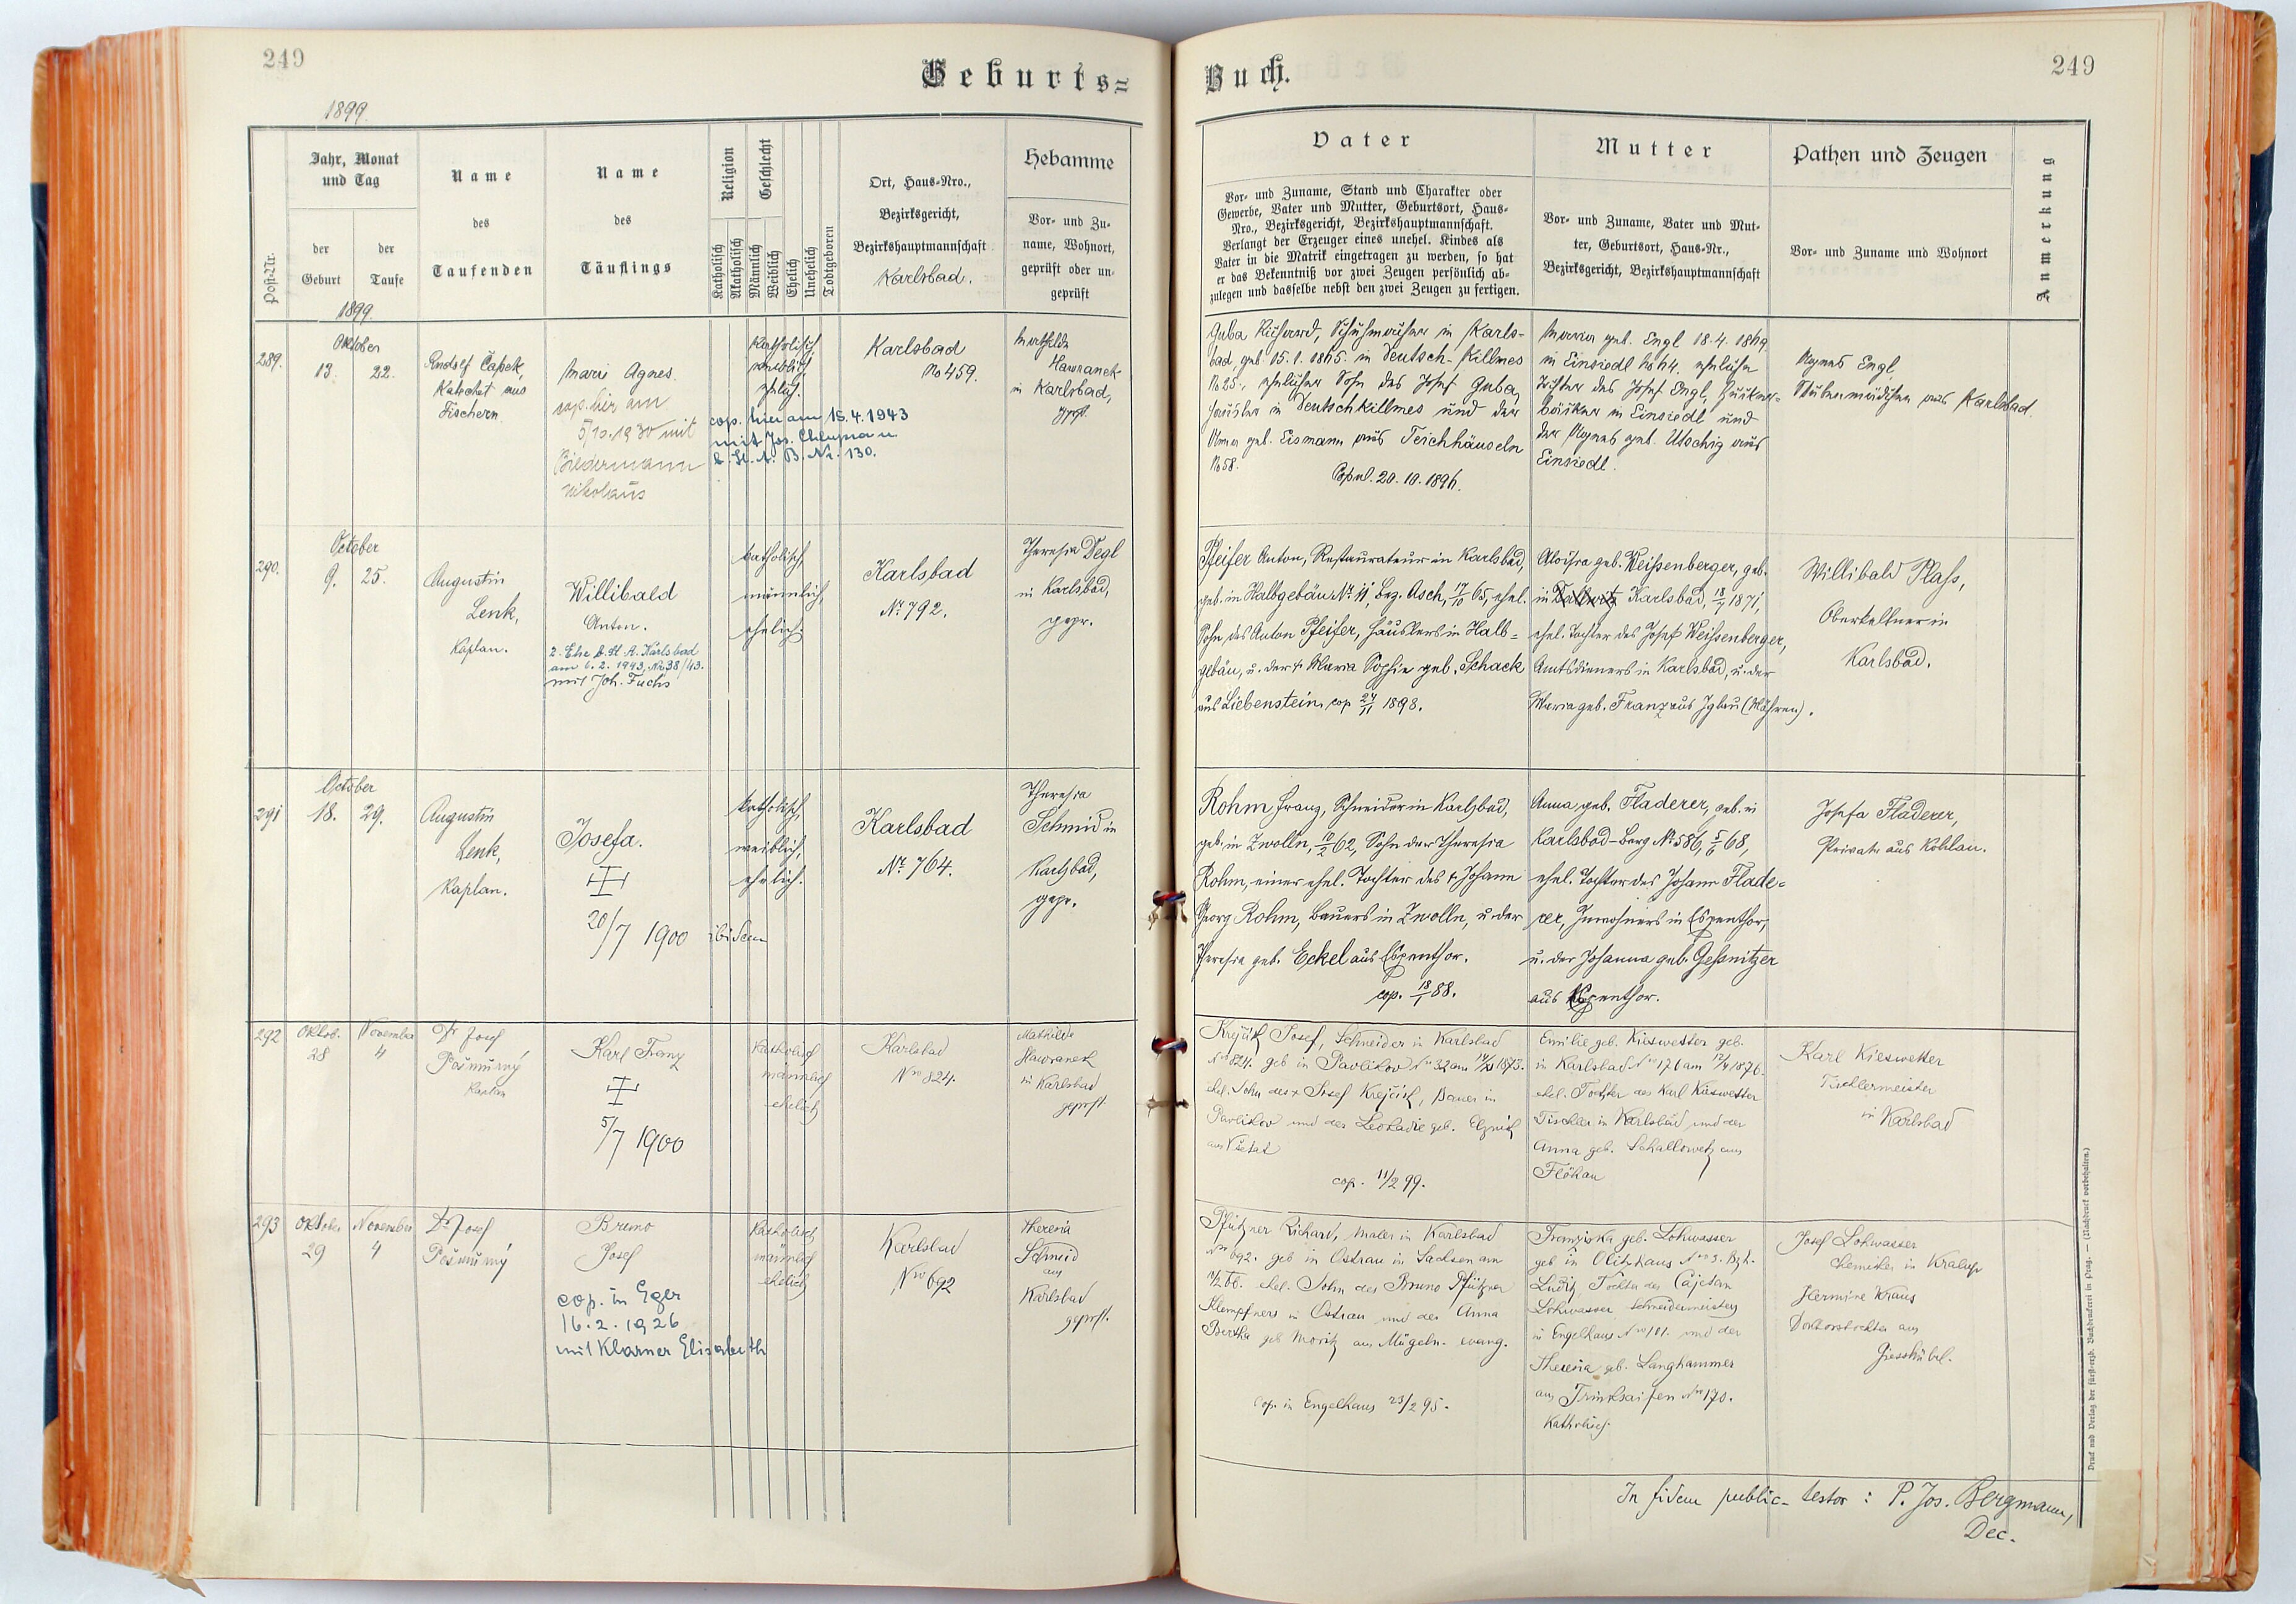 249
Geburts=
1899.
Post-Nr.
Jahr, Monat
und Tag
der
Geburt
der
Taufe
1899.
Name
des
Taufenden
Name
des
Täuflings
Religion
Geschlecht
Katholisch
Akatholisch
Männlich
Weiblich
Ehelich
Unehelich
Todtgeboren
Ort, Haus-Nro.,
Bezirksgericht,
Bezirkshauptmannschaft
Karlsbad.
Hebamme
Vor- und Zu-
name, Wohnort,
geprüft oder un-
geprüft
289.
Oktober
13. 22.
Rudolf Čapek,
Katechet aus
Fischern
Marie Agnes.
cop. hier am
5/10.1930 mit
Biedermann
Nikolaus
cop. hier am 15.4.1943
mit Jos.
b. St. A. B. Nr. 130.
katholisch
weiblich,
ehlich.
Karlsbad
No 459.
Mathilde
Hawranek
in Karlsbad,
gepft.
290.
October
9. 25.
Augustin
Lenk,
Kaplan.
Willibald
Anton.
2. Ehe b. St. A. Karlsbad
am 6.2.1943, Nr. 38/43.
mit Joh. Fuchs
katholisch,
männlich,
ehelich.
Karlsbad
Nr. 792.
Theresia Degl
in Karlsbad,
gepr.
291
October
18. 29.
Augustin
Lenk,
Kaplan.
Josefa.
20/7 1900 ibidem
katholisch,
weiblich,
ehelich.
Karlsbad
Nr. 764.
Theresia
Schmid in
Karlsbad,
gepr.
292
Oktob. November
28 4
Dr Josef
Pošmurný
Kaplan
Karl Franz
5/7 1900
Katholisch
männlich
ehelich
Karlsbad
Nro 824.
Mathilde
Hawranek
in Karlsbad
geprft.
293
Oktober November
29 4
Dr Josef
Pošmurný
Bruno
Josef
cop. in Eger
16.2.1926
mit Klarner Elisabeth
Katholisch
männlich
ehelich
Karlsbad
Nro 692
Theresia
Schmid
aus
Karlsbad
geprft.
Buch.
249
Vater
Vor- und Zuname, Stand und Charakter oder
Gewerbe, Vater und Mutter, Geburtsort, Haus-
Nro., Bezirksgericht, Bezirkshauptmannschaft.
Verlangt der Erzeuger eines unehel. Kindes als
Vater in die Matrik eingetragen zu werden, so hat
er das Bekenntniß vor zwei Zeugen persönlich ab-
zulegen und dasselbe nebst den zwei Zeugen zu fertigen.
Mutter
Vor- und Zuname, Vater und Mut-
ter, Geburtsort, Haus-Nr.,
Bezirksgericht, Bezirkshauptmannschaft
Pathen und Zeugen
Vor- und Zuname und Wohnort
Anmerkung
Guba Richard, Schuhmacher in Karls-
bad, geb. 15.1.1865. in Deutsch-Killmes
No 25., ehelicher Sohn des Josef Guba,
Häusler in Deutschkillmes und der
Anna geb. Eismann aus Teichhäuseln
No 58.
Copul. 20.10.1896.
Maria geb. Engl 18.4.1869.
in Einsiedl No 64, eheliche
Tochter des Josef Engl, Zucker-
bäcker in Einsiedl und
der Agnes geb. Utschig aus
Einsiedl.
Agnes Engl,
Stubenmädchen aus Karlsbad.
Pfeifer Anton, Restaurateur in Karlsbad,
geb. in Halbgebäu Nr. 11, Bez. Asch, 17/10 65, ehel.
Sohn des Anton Pfeifer, Häuslers in Halb=
gebäu, u. der † Maria Sophie geb. Schack
aus Liebenstein, cop 24/11 1898.
Aloisia geb. Weißenberger, geb.
in Dallwitz Karlsbad, 18/7 1871,
ehel. Tochter des Josef Weißenberger,
Amtsdieners in Karlsbad, u. der
Maria geb. Franz aus Iglau (Mähren).
Willibald Plaß,
Oberkellner in
Karlsbad.
Rohm Franz, Schneider in Karlsbad,
geb. in Zwolln, 11/2 62, Sohn der Theresia
Rohm, einer ehel. Tochter des † Johann
Georg Rohm, Bauers in Zwolln, u. der
Theresia geb. Eckel aus Espenthor.
cop. 18/1 88.
Anna geb. Fladerer, geb. in
Karlsbad-Berg Nr. 586, 5/6 68,
ehel. Tochter des Johann Flade=
rer, Inwohners in Espenthor,
u. der Johanna geb. Geßnitzer
aus Espenthor.
Josefa Fladerer,
Private aus Kohlau.
Krejčík Josef, Schneider in Karlsbad
Nro 824. geb in Pavlikov Nro 32 am 1873.
ehel. Sohn des † Josef Krejčík, Bauer in
Pavlikov und der Leokadie geb.
aus
cop. 11/2 99.
Emilie geb. Kieswetter geb.
in Karlsbad Nro 176 am 12/4 1876.
ehel. Tochter des Karl Kieswetter
Tischler in Karlsbad und der
Anna geb. Schallowetz aus
Flöhau
Karl Kieswetter
Tischlermeister
in Karlsbad
Pfützner Richard, Maler in Karlsbad
Nro 692. geb in Ostrau in Sachsen am
ehel. Sohn des Bruno Pfützner
Klempfners in Ostrau und der Anna
Bertha geb Moritz aus Mügeln. evang.
cop. in Engelhaus 23/2 95.
Franziska geb. Lohwasser
geb in Olitzhaus Nro 3. Bzh.
Luditz Tochter des Cajetan
Lohwasser Schneidermeisters
in Engelhaus Nro 101. und der
Theresia geb. Langhammer
aus Trinksaifen Nro 170.
Katholisch.
Josef Lohwasser
Chemiker in Kralup
Hermine Kraus
Doktorstochter aus
Giesshübl.
In fidem public. testor: P. Jos. Bergmann,
Dec.
Druck und Verlag der fürst-erzb. Buchdruckerei in Prag. — (Nachdruck vorbehalten.)